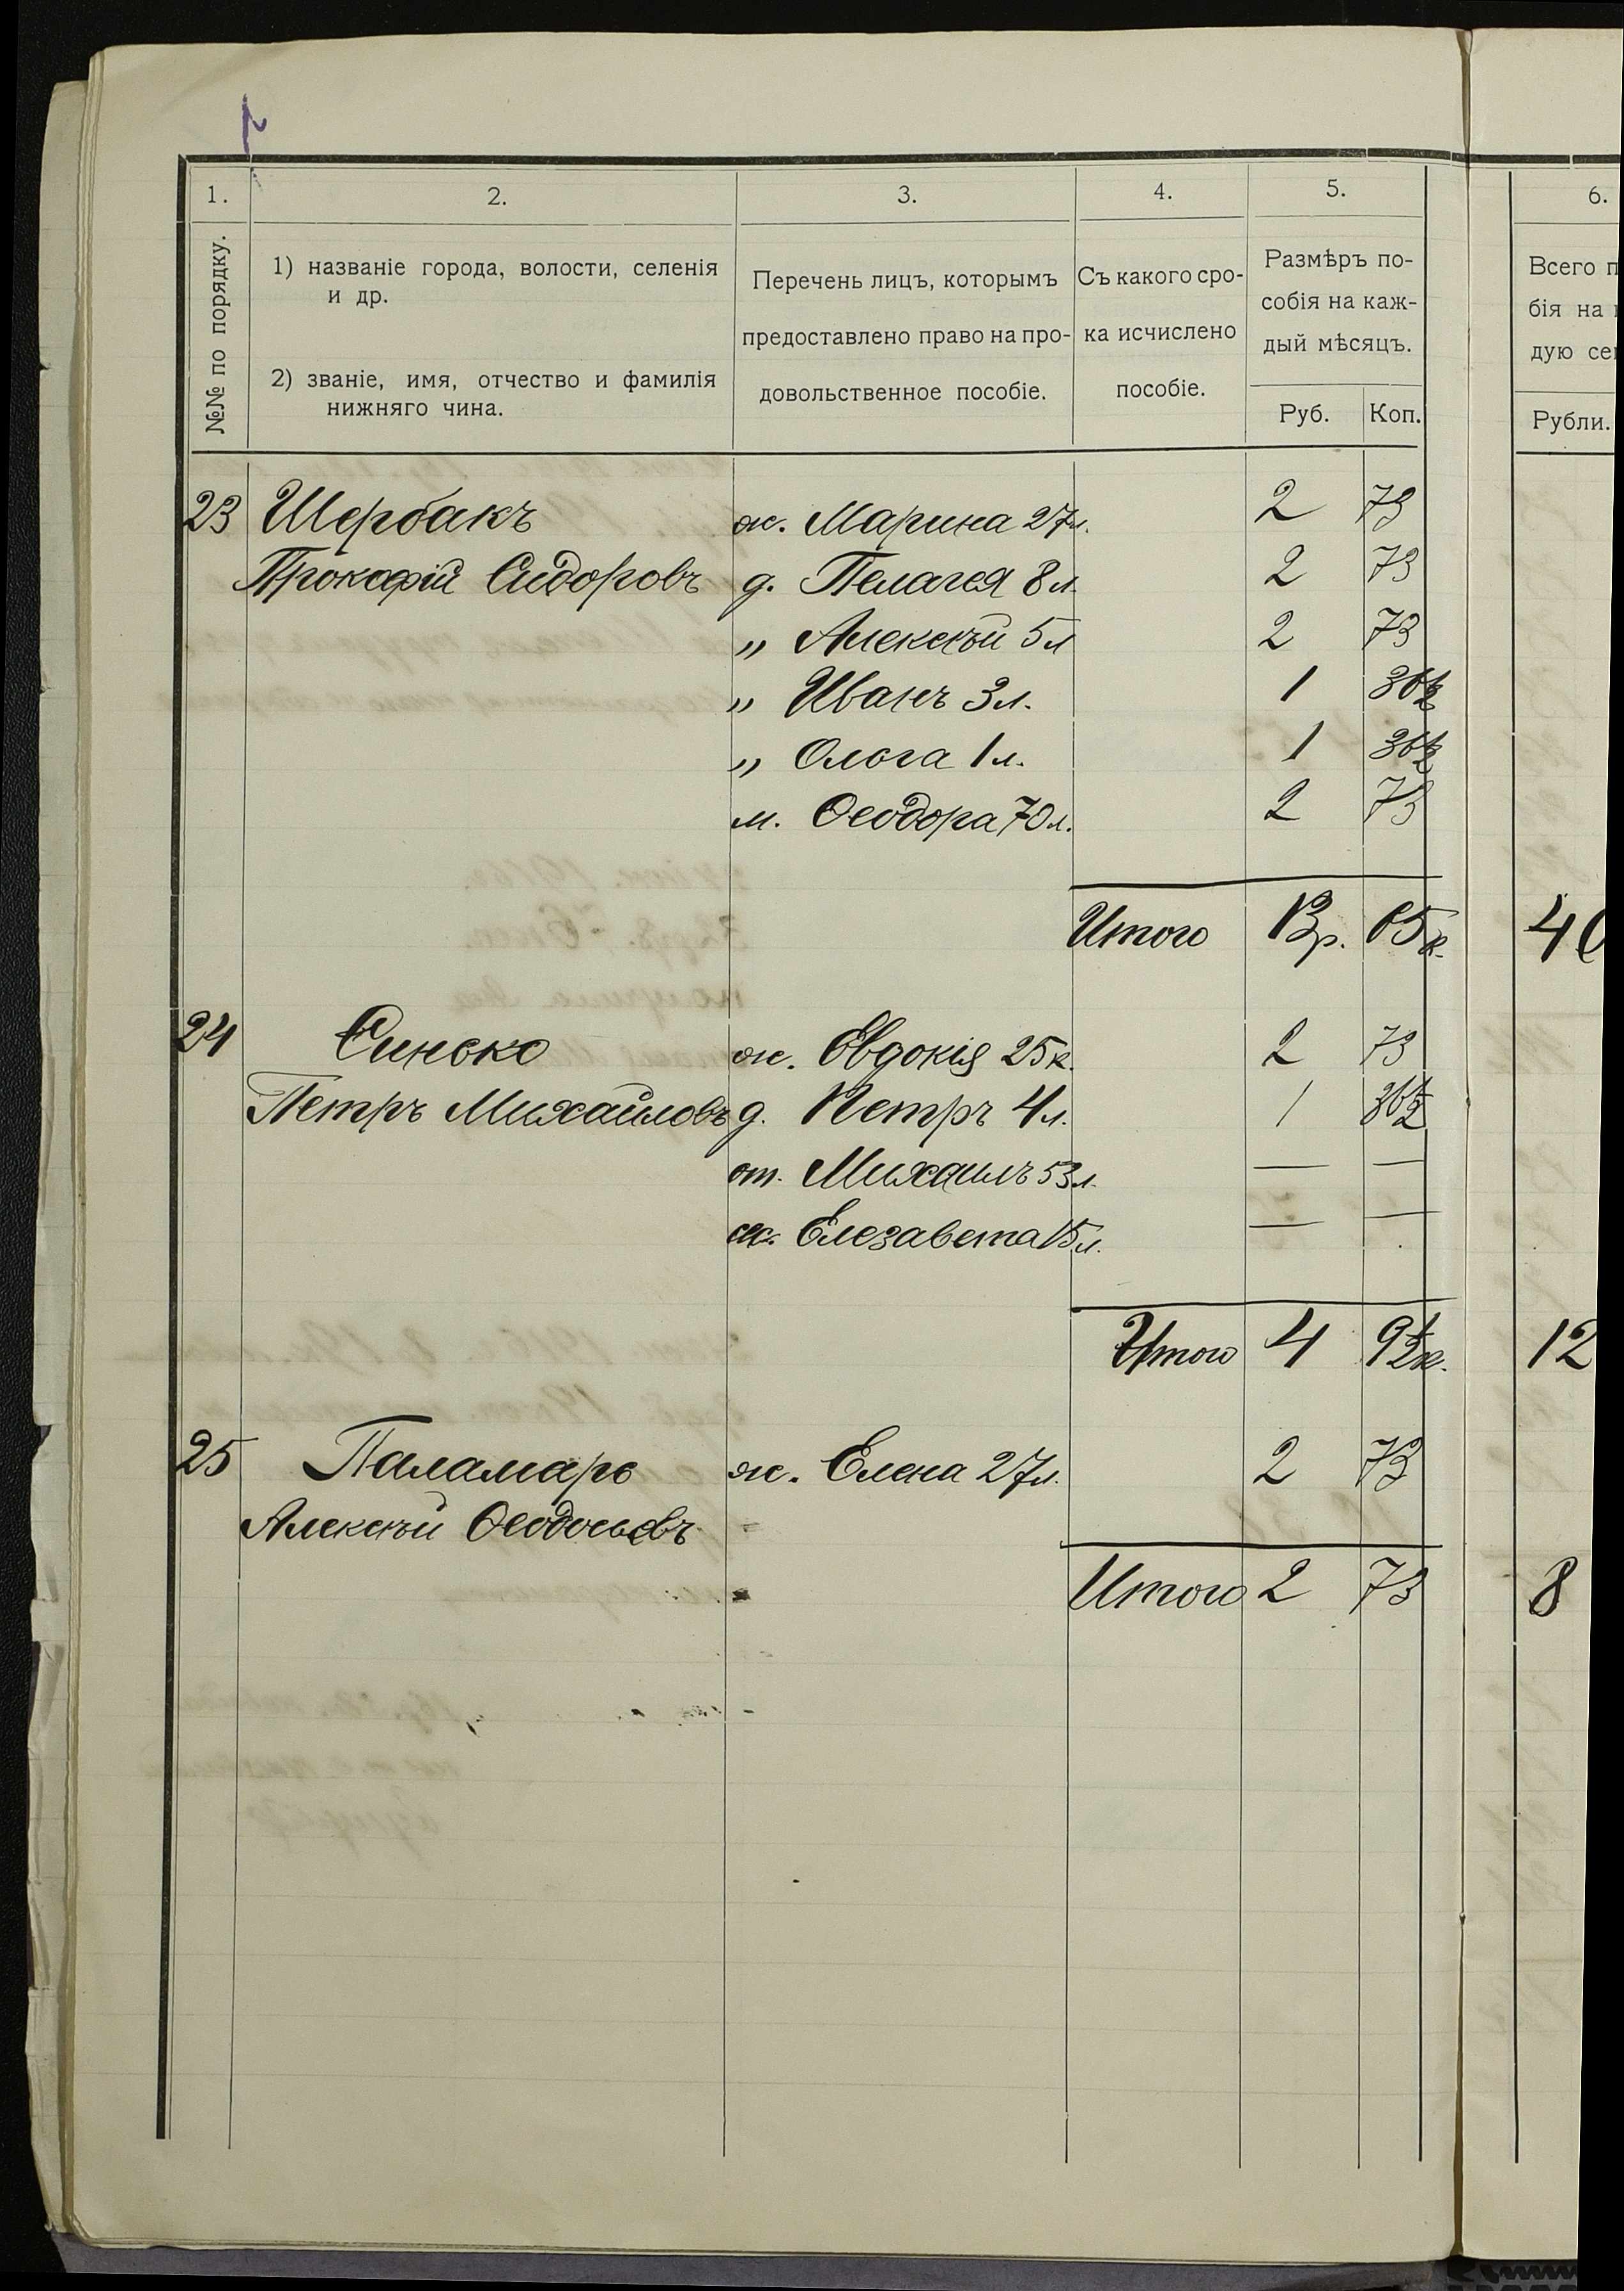 1. 2. 3. 4. 5. 6.
№№ по порядку.
1) названіе города, волости, селенія
и др.
2) званіе, имя, отчество и фамилія
нижняго чина.
Перечень лицъ, которымъ
предоставлено право на про-
довольственное пособіе.
Съ какого сро-
ка исчислено
пособіе.
Размѣръ по-
собія на каж-
дый мѣсяцъ.
Руб. Коп.
Всего п
бія на
дую се
Рубли.
23 Щербакъ ж. Марина 27 л. 2 73
Прокофій Сидоровъ д. Пелагея 8 л. 2 73
„ Алексѣй 5 л 2 73
„ Иванъ 3 л. 1 36½
„ Ольга 1 л. 1 36½
м. Ѳеодора 70 л. 2 73
Итого 13 р. 65 к. 40
24 Синько ж. Евдокія 25 л. 2 73
Петръ Михайловъ д. Петръ 4 л. 1 36½
от. Михаилъ 53 л. — —
Елезавета 15 л. — —
Итого 4 9½ к. 12
25 Паламарь ж. Елена 27 л. 2 73
Алексѣй Ѳеодосьевъ
Итого 2 73 8